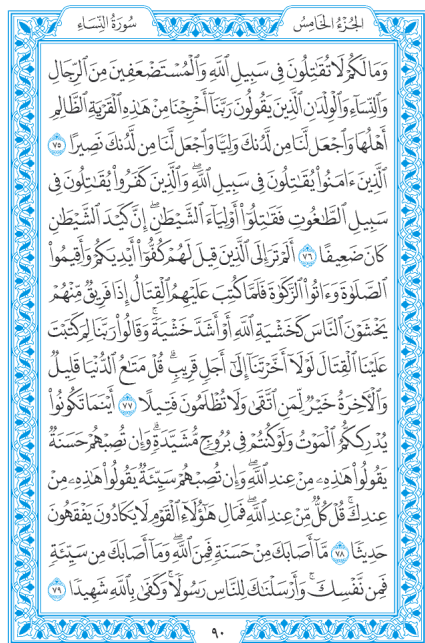 الجُزْءُ الخَامِسُ
سُورَةُ النِّسَاءِ
وَمَا لَكُمْ لَا تُقَٰتِلُونَ فِي سَبِيلِ ٱللَّهِ وَٱلْمُسْتَضْعَفِينَ مِنَ ٱلرِّجَالِ
وَٱلنِّسَآءِ وَٱلْوِلْدَٰنِ ٱلَّذِينَ يَقُولُونَ رَبَّنَآ أَخْرِجْنَا مِنْ هَٰذِهِ ٱلْقَرْيَةِ ٱلظَّالِمِ
أَهْلُهَا وَٱجْعَل لَّنَا مِن لَّدُنكَ وَلِيًّا وَٱجْعَل لَّنَا مِن لَّدُنكَ نَصِيرًا ٧٥
ٱلَّذِينَ ءَامَنُوا۟ يُقَٰتِلُونَ فِي سَبِيلِ ٱللَّهِ ۖ وَٱلَّذِينَ كَفَرُوا۟ يُقَٰتِلُونَ فِي
سَبِيلِ ٱلطَّٰغُوتِ فَقَٰتِلُوٓا۟ أَوْلِيَآءَ ٱلشَّيْطَٰنِ ۖ إِنَّ كَيْدَ ٱلشَّيْطَٰنِ
كَانَ ضَعِيفًا ٧٦ أَلَمْ تَرَ إِلَى ٱلَّذِينَ قِيلَ لَهُمْ كُفُّوٓا۟ أَيْدِيَكُمْ وَأَقِيمُوا۟
ٱلصَّلَوٰةَ وَءَاتُوا۟ ٱلزَّكَوٰةَ فَلَمَّا كُتِبَ عَلَيْهِمُ ٱلْقِتَالُ إِذَا فَرِيقٌ مِّنْهُمْ
يَخْشَوْنَ ٱلنَّاسَ كَخَشْيَةِ ٱللَّهِ أَوْ أَشَدَّ خَشْيَةً ۚ وَقَالُوا۟ رَبَّنَا لِمَ كَتَبْتَ
عَلَيْنَا ٱلْقِتَالَ لَوْلَآ أَخَّرْتَنَآ إِلَىٰٓ أَجَلٍ قَرِيبٍ ۗ قُلْ مَتَٰعُ ٱلدُّنْيَا قَلِيلٌ
وَٱلْءَاخِرَةُ خَيْرٌ لِّمَنِ ٱتَّقَىٰ وَلَا تُظْلَمُونَ فَتِيلًا ٧٧ أَيْنَمَا تَكُونُوا۟
يُدْرِككُّمُ ٱلْمَوْتُ وَلَوْ كُنتُمْ فِي بُرُوجٍ مُّشَيَّدَةٍ ۗ وَإِن تُصِبْهُمْ حَسَنَةٌ
يَقُولُوا۟ هَٰذِهِۦ مِنْ عِندِ ٱللَّهِ ۖ وَإِن تُصِبْهُمْ سَيِّئَةٌ يَقُولُوا۟ هَٰذِهِۦ مِنْ
عِندِكَ ۚ قُلْ كُلٌّ مِّنْ عِندِ ٱللَّهِ ۖ فَمَالِ هَٰٓؤُلَآءِ ٱلْقَوْمِ لَا يَكَادُونَ يَفْقَهُونَ
حَدِيثًا ٧٨ مَّآ أَصَابَكَ مِنْ حَسَنَةٍ فَمِنَ ٱللَّهِ ۖ وَمَآ أَصَابَكَ مِن سَيِّئَةٍ
فَمِن نَّفْسِكَ ۚ وَأَرْسَلْنَٰكَ لِلنَّاسِ رَسُولًا ۚ وَكَفَىٰ بِٱللَّهِ شَهِيدًا ٧٩
٩٠